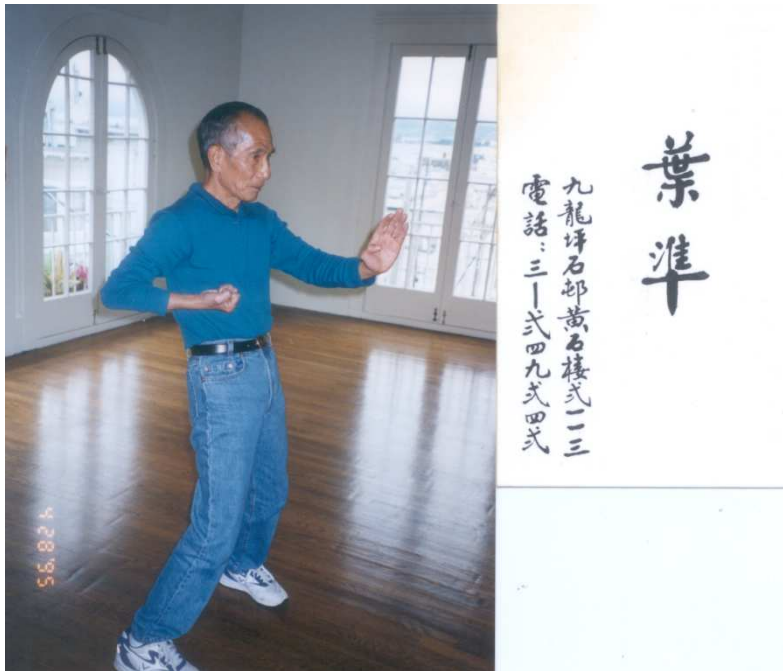 葉準
九龍坪石邨黃石樓弍一一三
電話：三｜弍四九弍四弍
4 28 '95